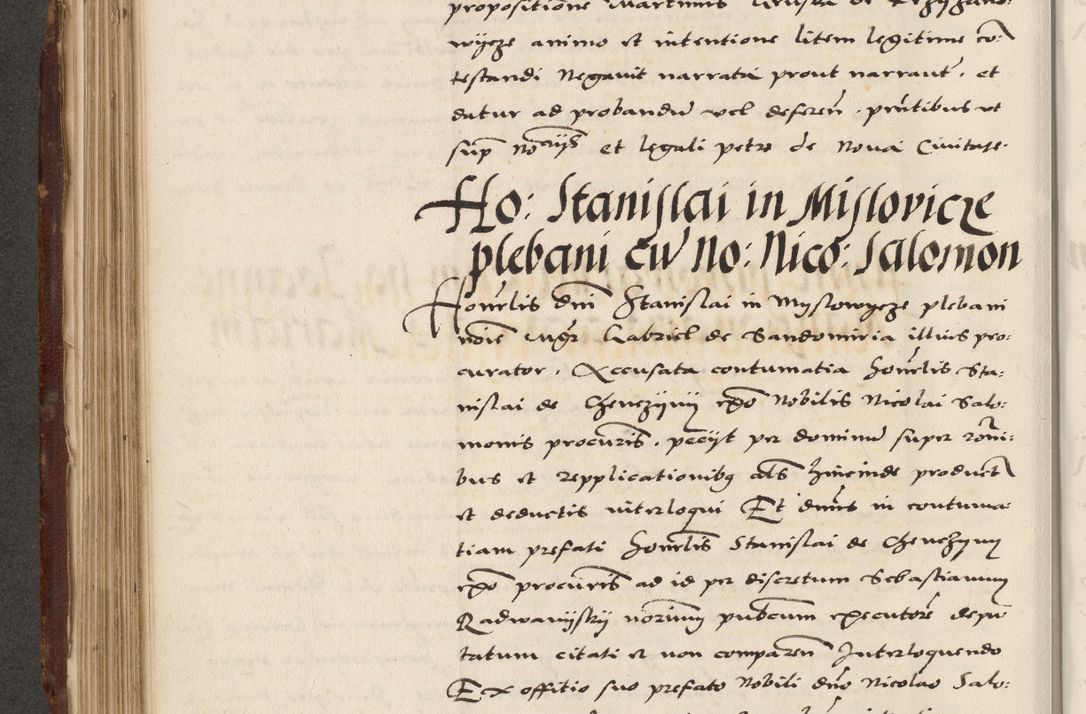 propositione Martinus
wycze animo et intentione litem legitime co͞
testandi Negavit narrata prout narrant͞. et
datur ad probandu͞ vel deferen͞. pn͞tibus ut
sup͞ No͞rijs et legali petro de Nova Civitate.
Ho: Stanislai in Mislovicze
plebani cu͞ No: Nico: Salomon
Hono͞rlis dn͞i Stanislai in Myslowycze plebani
no͞ie mg͞r Gabriel de Sandomiria illius pro:
curator. Accusata contumatia hono͞rlis Sta:
nislai de Chenczyny Nobilis Nicolai Salo:
monis procur͞is. pecyt per dominu͞ super ro͞ni:
bus et repplicationibq al͞s hincinde product͞
et deductis interloqui Et dn͞us in contuma
tiam prefati hono͞rlis Stanislai de Chenczyny
procur͞is ad id per discretum Sebastianum
Radwanijskij no͞rium pub͞cum executore͞ depu
tatum citati et non comparen͞ Interloquendo
Ex offitio suo prefato Nobili dn͞o Nicolao Salo: